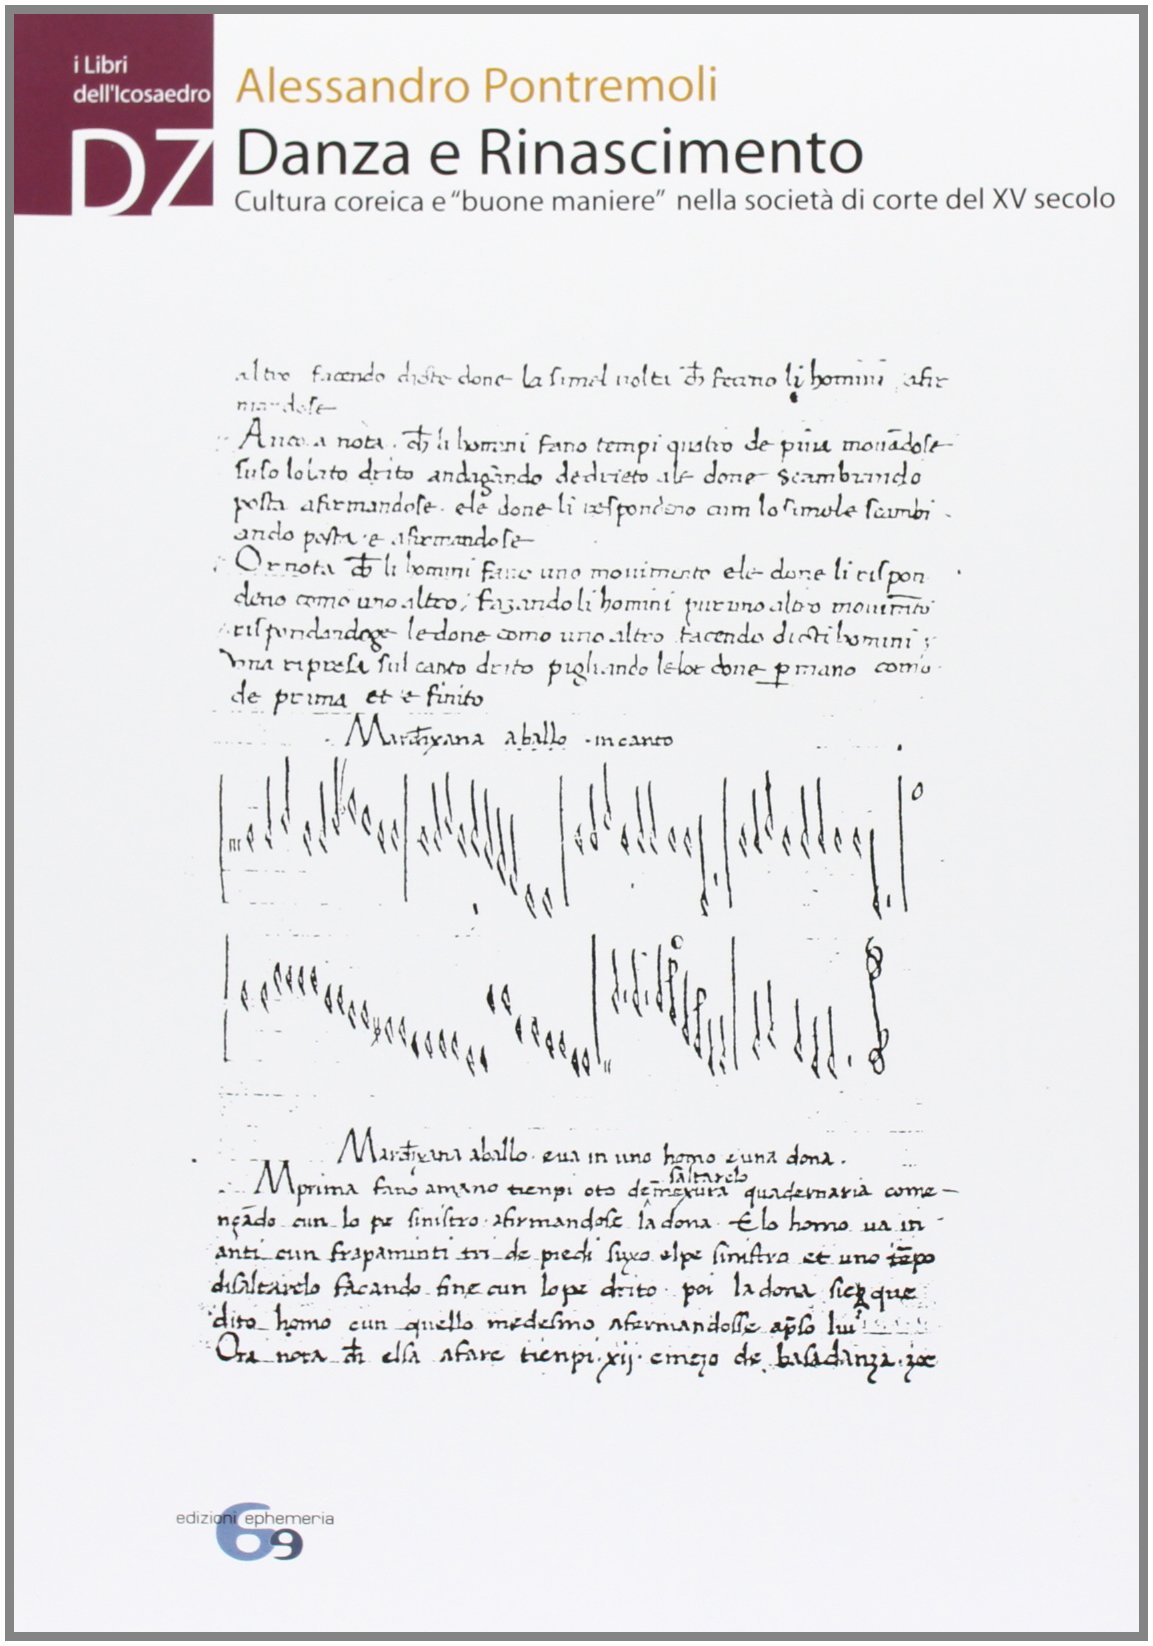 i Libri
dell'Icosaedro
DZ
Alessandro Pontremoli
Danza e Rinascimento
Cultura coreica e “buone maniere” nella società di corte del XV secolo
altro facendo dicte done la simel volta che feceno li homini afir
mandose
Ancora nota che li homini fano tempi quatro de piva movandose
suso lo lato drito andagando dedrieto ale done scambiando
posta afirmandose ele done li respondeno cum lo simele scambi
ando posta e afirmandose
Or nota che li homini fano uno movimento ele done li rispon
deno como uno altro, fazando li homini pur uno altro movimento
rispondandoge le done como uno altro facendo dicti homini
una ripresa sul canto drito pigliando le lor done per mano como
de prima et e finito
Marchexana a ballo in canto
Marchexana a ballo e va in uno homo e una dona.
saltarelo
In prima fano a mano tienpi oto de mexura quadernaria come
nçado cun lo pe sinistro afirmandose la dona. E lo homo va in
anti cun frapaminti tri de piedi suxo el pe sinistro et uno tenpo
di saltarelo facando fine cun lo pe drito poi la dona que
dito homo cun quello medesmo afermandosse apso lui
Ora nota che essa a fare tienpi xij e mezo de basadanza
edizioni ephemeria
69